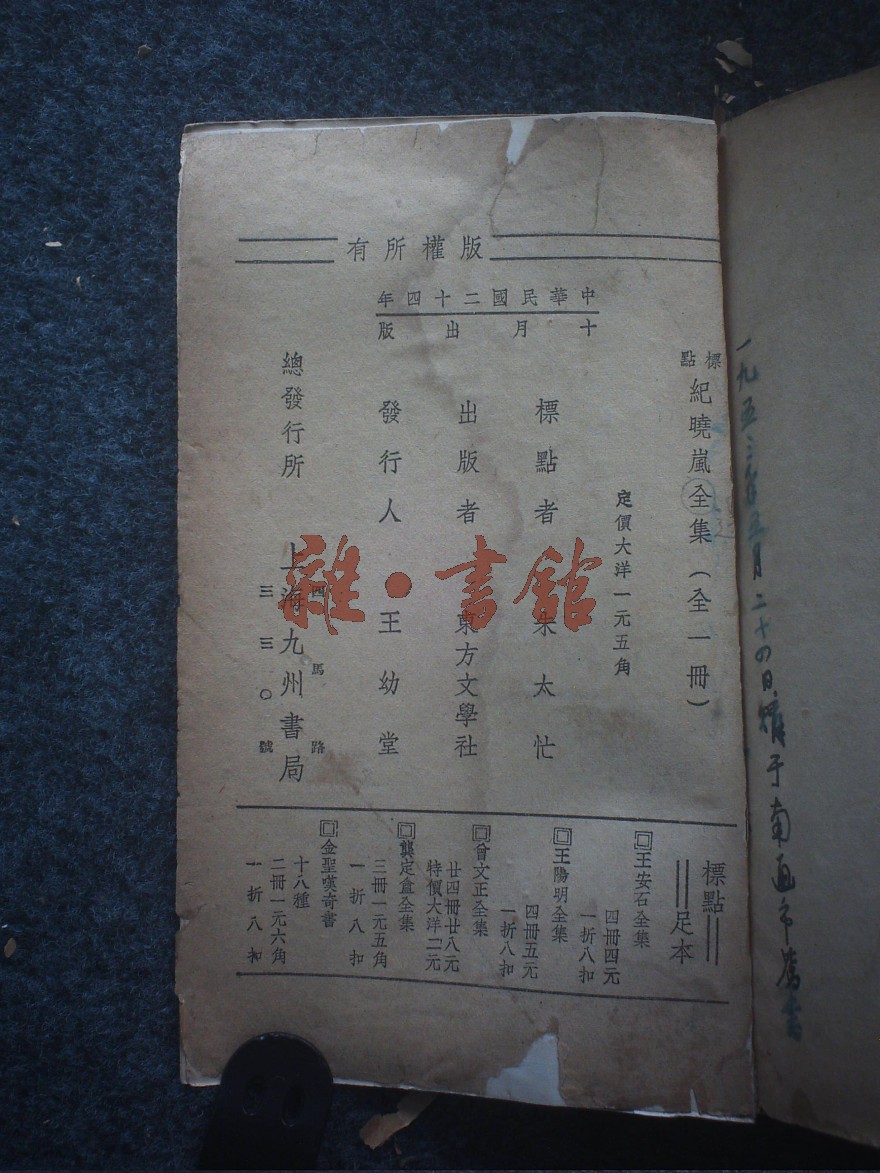 版權所有
中華民國二十四年
十月出版
標點 紀曉嵐全集(全一冊)
定價大洋一元五角
標點者 朱太忙
出版者 東方文學社
發行人 王幼堂
總發行所 上海九州書局
四馬路
三三〇號
標點
足本
王安石全集
四冊四元
一折八扣
王陽明全集
四冊五元
一折八扣
曾文正全集
廿四冊廿八元
特價大洋二元
龔定盦全集
三冊一元五角
一折八扣
金聖嘆奇書
十八種
二冊一元六角
一折八扣
一九五三年五月二十四日購于南通市舊書
雜·書館